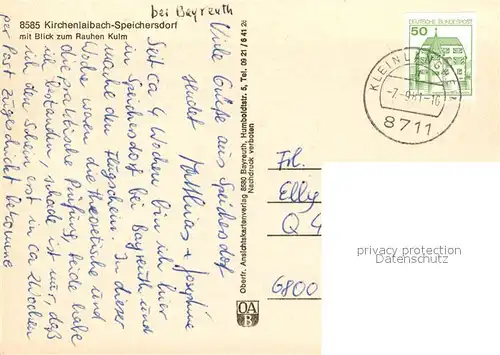 8585 Kirchenlaibach-Speichersdorf
mit Blick zum Rauhen Kulm
bei Bayreuth
Viele Grüße aus Speichersdorf
sendet Matthias + Josephine
Seit ca 4 Wochen bin ich hier
in Speichersdorf bei Bayreuth und
mache den Flugschein. In dieser
Woche waren die theoretische und
die praktische Prüfung, beide habe
ich bestanden, schade ist nur, daß
ich den Schein erst in ca 2 Wochen
per Post zugeschickt bekomme
Oberfr. Ansichtskartenverlag 8580 Bayreuth, Humboldtstr. 5, Tel. 09 21 / 6 41 26
Nachdruck verboten
OA
B
DEUTSCHE BUNDESPOST
50
KLEINLANGHEIM
-7.-9.81-16
8711
Frl.
Elly
Q 4
6800
privacy protection
Ansichtskarten-Center.de